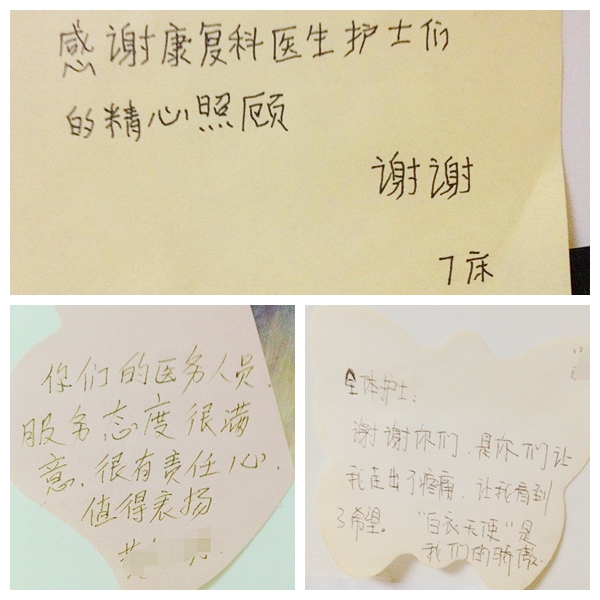 感谢康复科医生护士们
的精心照顾
谢谢
7床
你们的医务人员.
服务态度很满
意.很有责任心.
值得表扬
全体护士:
谢谢你们.是你们让
我走出了疼痛.让我看到
了希望。"白衣天使"是
我们的骄傲.